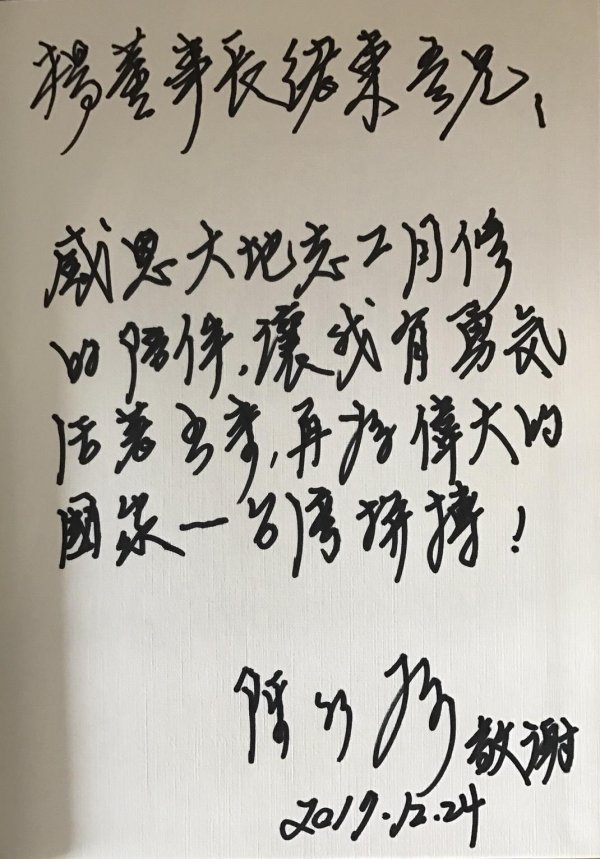 楊董事長緒東吾兄,
感恩大地志工同修
的陪伴,讓我有勇氣
活著出來,再為偉大的
國家—台灣拼搏!
陳水扁 敬謝
2019.12.24